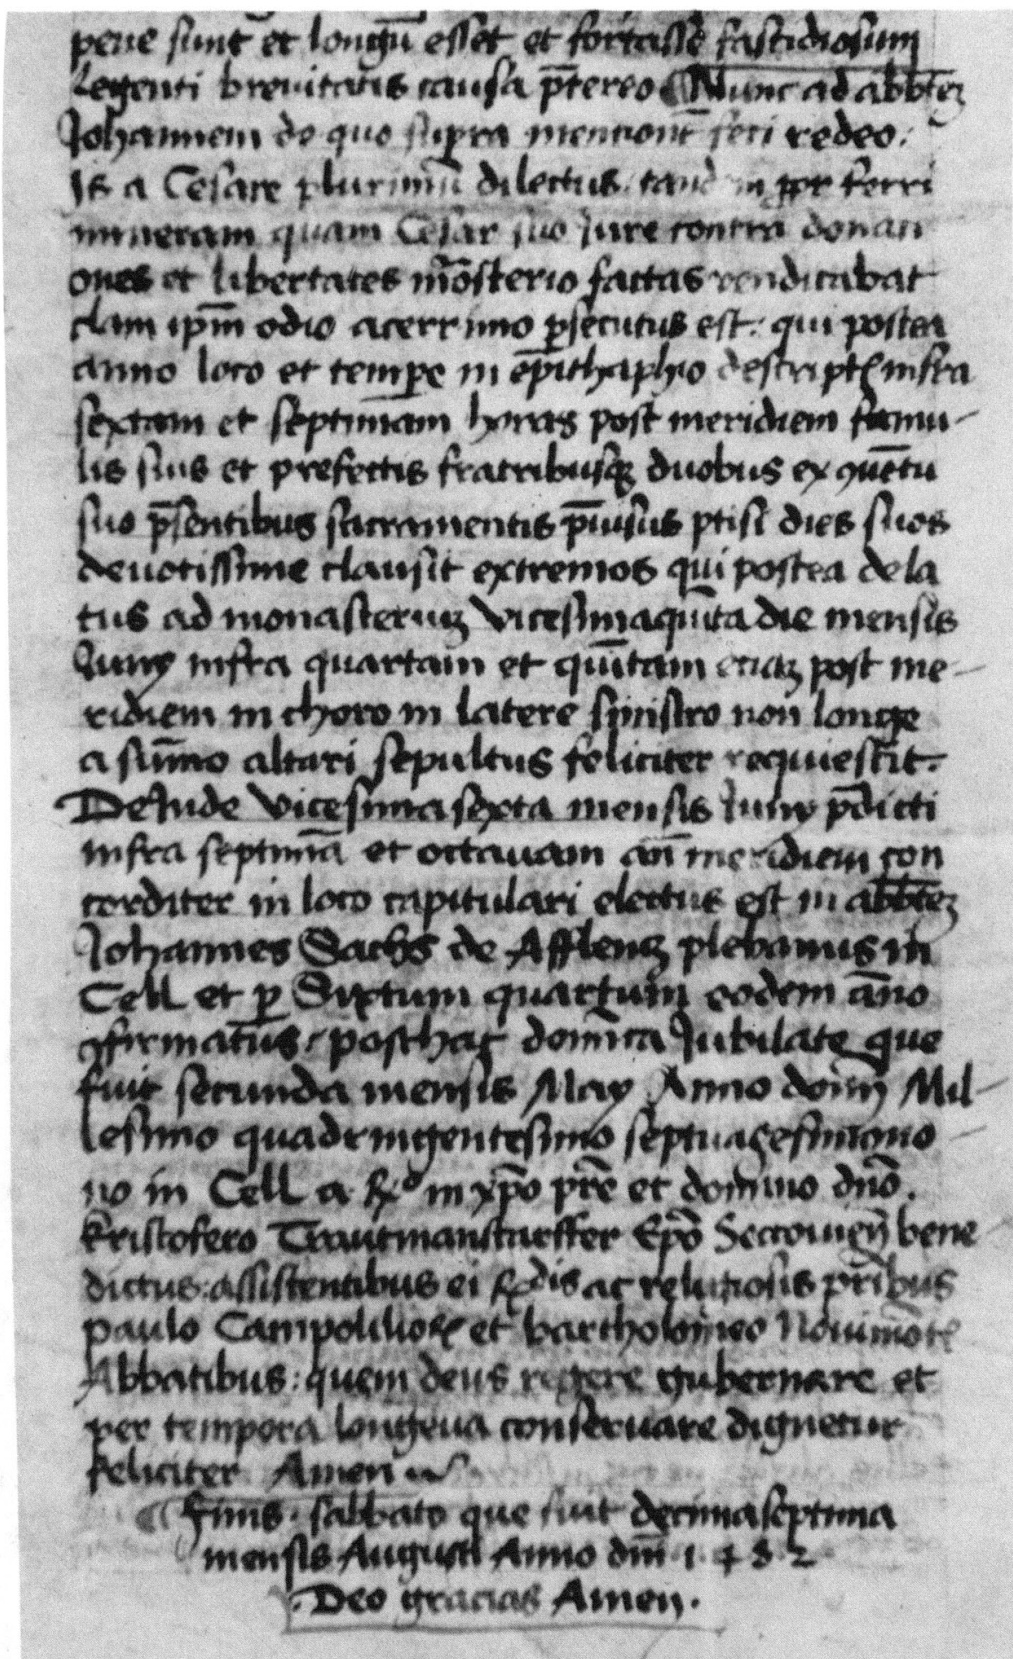 pene sunt et longū esset et fortasse fastidiosum
Legenti breuitatis causa p̄tereo Nunc ad abbtē
Johannem de quo supra mentionē feci redeo:
Is a Cesare plurimū dilectus tandem ꝓpter ferri
mineram quam Cesar suo Jure contra donati
ones et libertates mōsterio factas vendicabat
clam ip̄m odio acerrimo ꝑsecutus est: qui postea
anno loco et tempe in epithaphio descriptis infra
sextam et septimam horas post meridiem famu-
lis suis et prefectis fratribusqꝫ duobus ex
suo p̄sentibus sacramentis p̄uisus ptisi dies suos
deuotissime clausit extremos qui postea dela
tus ad monasteriuꝫ vicesimaquīta die mensis
Juny infra quartam et quītam eciaꝫ post me-
ridiem in choro in latere sinistro non longe
a sūmo altari sepultus feliciter requiescit.
DeInde vicesima sexta mensis Juny p̄dicti
infra septimā et octauam an̄ meridiem con
corditer in loco capitulari electus est in abbtē
Johannes Sachs de Afflenꝫ plebanus in
Cell et ꝑ Sixtum quartum eodem āno
ꝯfirmatus, posthac domīca Jubilate que
fuit secunda mensis May Anno domī Mil-
lesimo quadringentesimo septuagesimono-
no in Cell a Rdo in xp̄o pr̄e et domino dn̄o.
Kristofero Trautmanstarffer Ep̄o Seccouien̄ bene-
dictus: assistentibus ei Rdis ac religiosis pr̄ibus
paulo Campolilioꝝ et bartholomeo Nouimōtꝭ
Abbatibus: quem deus regere gubernare et
per tempora longeua conseruare dignetur
feliciter Amen
Finis. sabbato que fuit decimaseptima
mensis Augusti Anno dm̄ 1482
Deo gracias Amen.